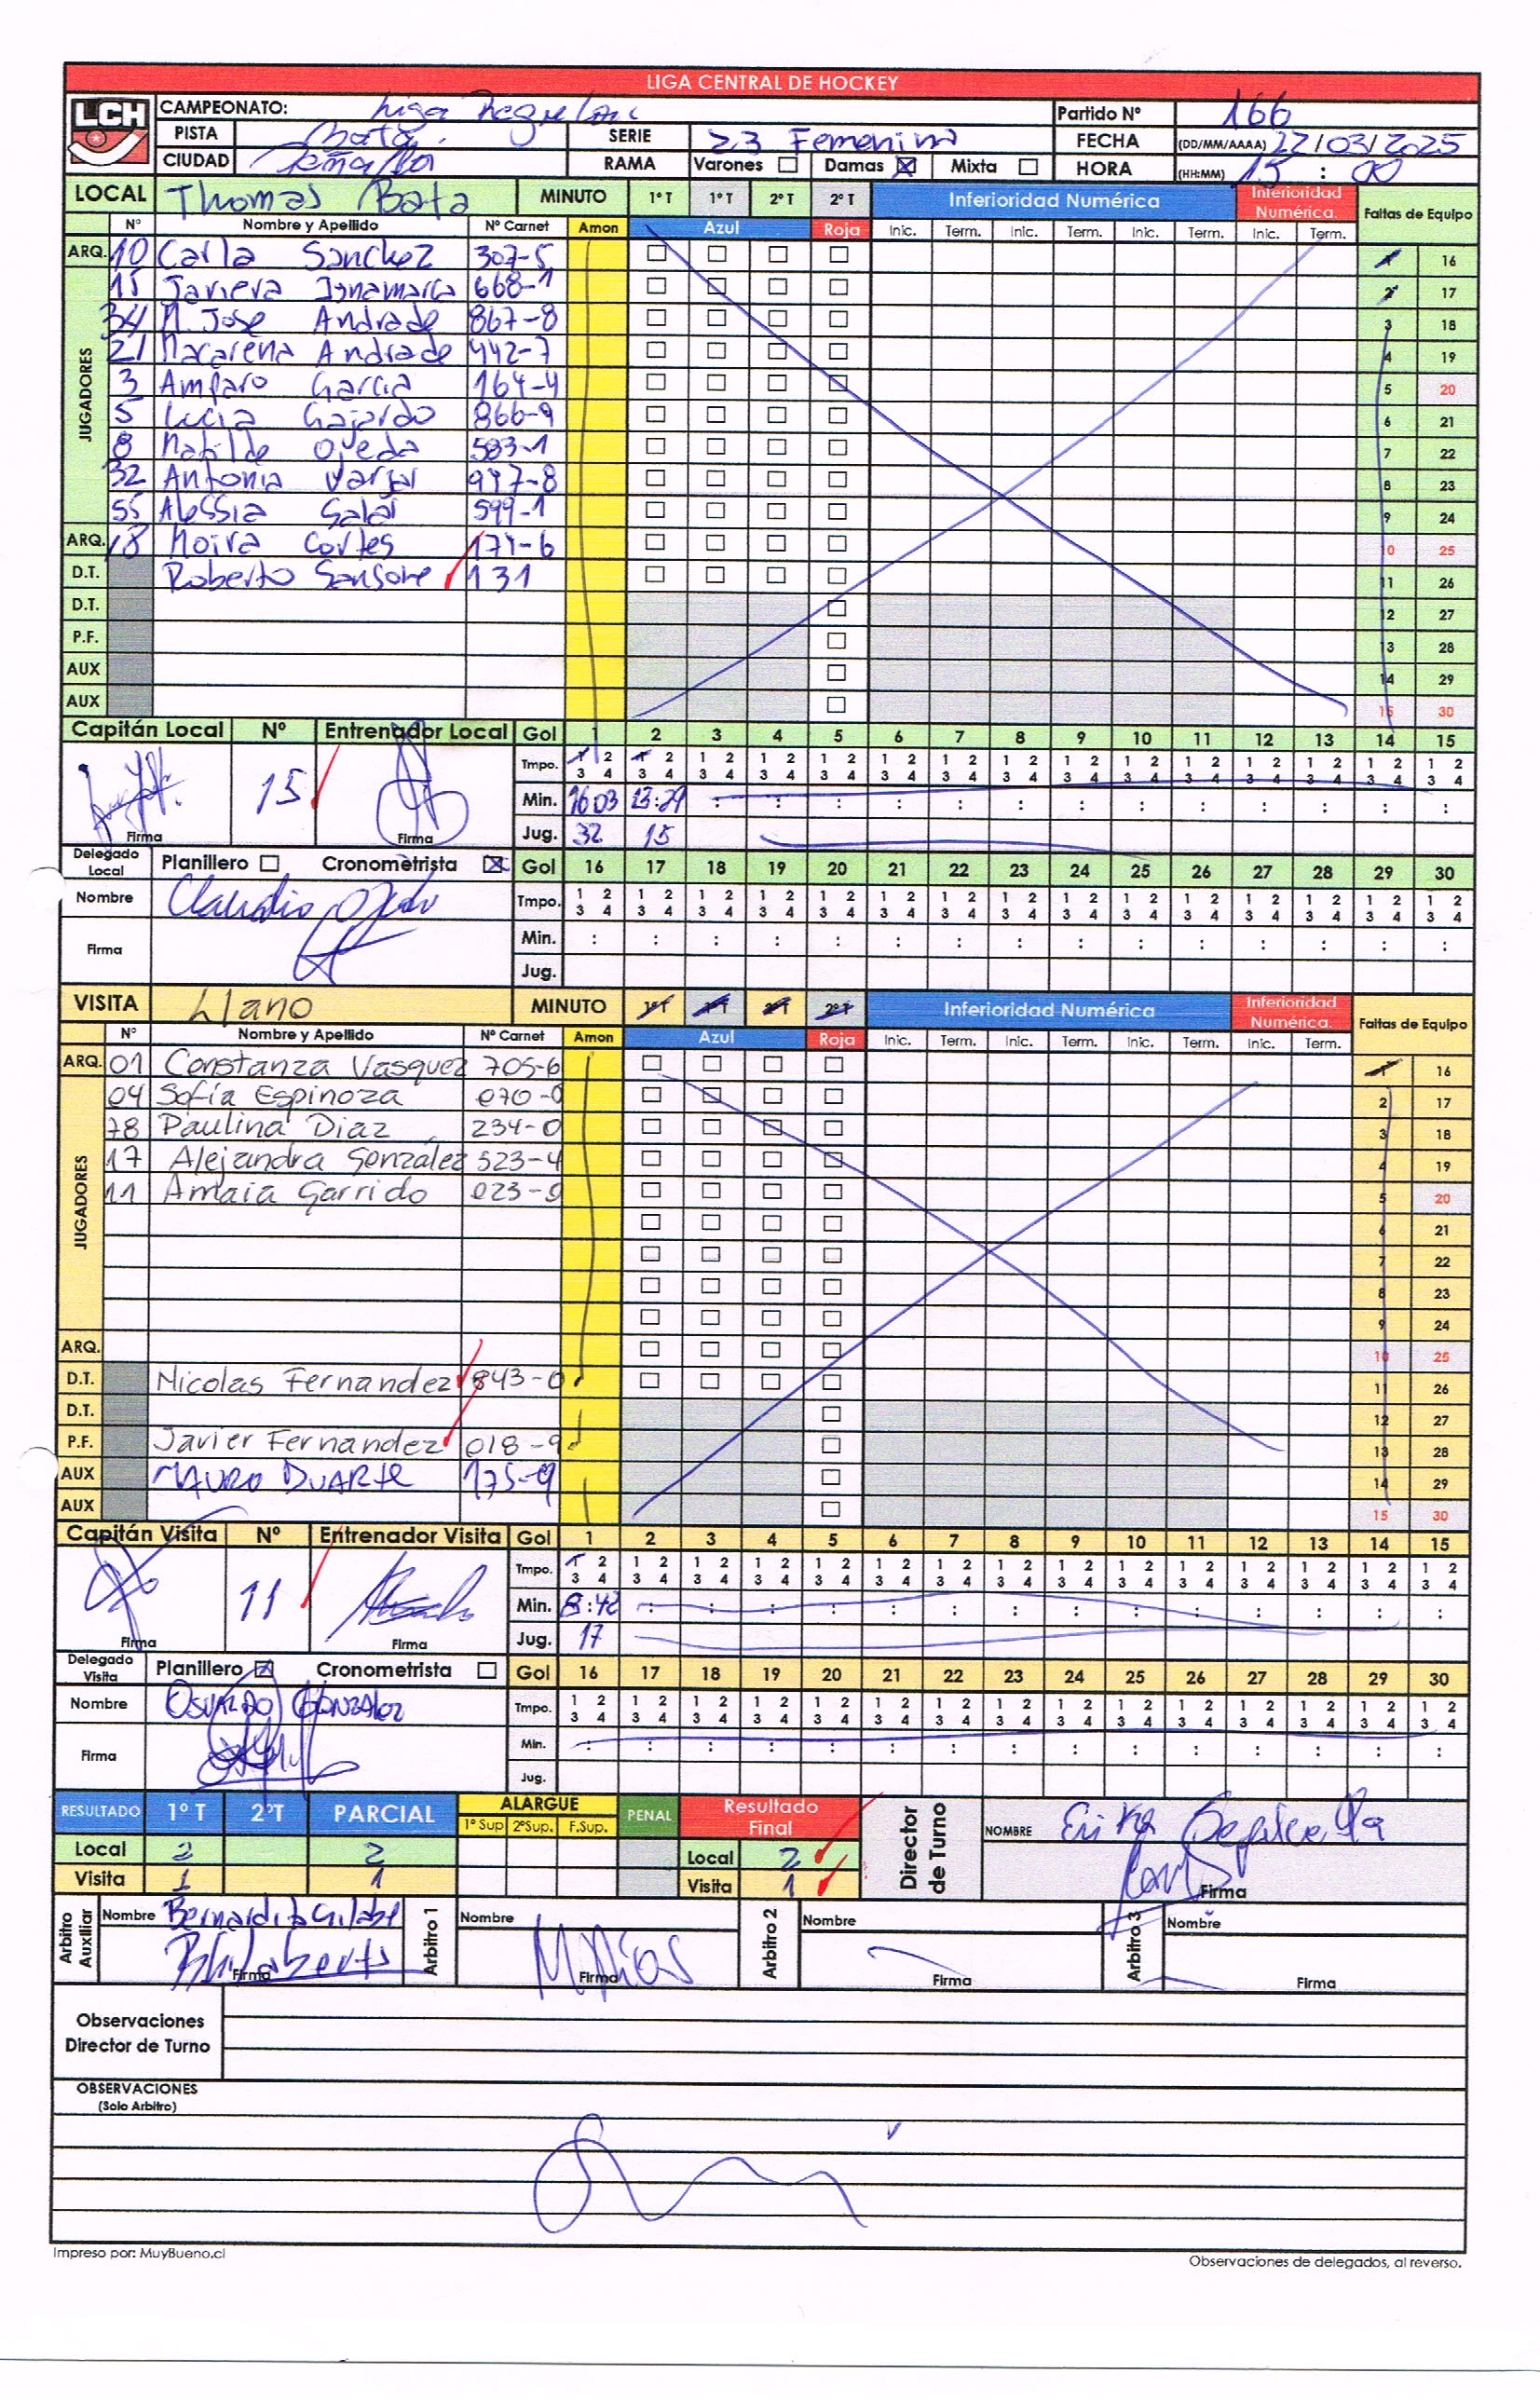 LIGA CENTRAL DE HOCKEY
LCH
CAMPEONATO: Liga Regular Partido Nº 166
PISTA Bata SERIE 23 Femenina FECHA (DD/MM/AAAA) 22/03/2025
CIUDAD Peñaflor RAMA Varones Damas Mixta HORA (HH:MM) 15 : 00
LOCAL Thomas Bata MINUTO 1º T 1º T 2º T 2º T Inferioridad Numérica Inferioridad Numérica. Faltas de Equipo
Nº Nombre y Apellido Nº Carnet Amon Azul Roja Inic. Term. Inic. Term. Inic. Term. Inic. Term.
ARQ. 10 Carla Sanchez 307-5 1 16
JUGADORES
15 Javiera 668-1 2 17
34 M. José Andrade 867-8 3 18
21 Macarena Andrade 442-7 4 19
3 Amparo Garcia 164-4 5 20
5 Lucia Gajardo 866-9 6 21
8 Matilde Ojeda 583-1 7 22
32 Antonia Vargas 947-8 8 23
55 Alessia Salas 599-1 9 24
ARQ. 18 Moira Cortes 171-6 10 25
D.T. Roberto Sansone 131 11 26
D.T. 12 27
P.F. 13 28
AUX 14 29
AUX 15 30
Capitán Local Nº Entrenador Local Gol 1 2 3 4 5 6 7 8 9 10 11 12 13 14 15
Tmpo. 1 2 1 2 1 2 1 2 1 2 1 2 1 2 1 2 1 2 1 2 1 2 1 2 1 2 1 2 1 2
3 4 3 4 3 4 3 4 3 4 3 4 3 4 3 4 3 4 3 4 3 4 3 4 3 4 3 4 3 4
15 Min. 16 03 23:29 : : : : : : : : : : : : :
Firma Firma Jug. 32 15
Delegado Local Planillero Cronometrista Gol 16 17 18 19 20 21 22 23 24 25 26 27 28 29 30
Nombre Claudio Ojeda Tmpo. 1 2 1 2 1 2 1 2 1 2 1 2 1 2 1 2 1 2 1 2 1 2 1 2 1 2 1 2 1 2
3 4 3 4 3 4 3 4 3 4 3 4 3 4 3 4 3 4 3 4 3 4 3 4 3 4 3 4 3 4
Firma Min. : : : : : : : : : : : : : : :
Jug.
VISITA Llano MINUTO 1º T 1º T 2º T 2º T Inferioridad Numérica Inferioridad Numérica. Faltas de Equipo
Nº Nombre y Apellido Nº Carnet Amon Azul Roja Inic. Term. Inic. Term. Inic. Term. Inic. Term.
ARQ. 01 Constanza Vasquez 705-6 1 16
JUGADORES
04 Sofía Espinoza 070-0 2 17
78 Paulina Diaz 234-0 3 18
17 Alejandra Gonzalez 523-4 4 19
11 Amaia Garrido 023-0 5 20
6 21
7 22
8 23
9 24
ARQ. 10 25
D.T. Nicolas Fernandez 843-0 11 26
D.T. 12 27
P.F. Javier Fernandez 018-9 13 28
AUX MAURO DUARTE 175-9 14 29
AUX 15 30
Capitán Visita Nº Entrenador Visita Gol 1 2 3 4 5 6 7 8 9 10 11 12 13 14 15
Tmpo. 1 2 1 2 1 2 1 2 1 2 1 2 1 2 1 2 1 2 1 2 1 2 1 2 1 2 1 2 1 2
3 4 3 4 3 4 3 4 3 4 3 4 3 4 3 4 3 4 3 4 3 4 3 4 3 4 3 4 3 4
11 Min. 8:42 : : : : : : : : : : : : : :
Firma Firma Jug. 17
Delegado Visita Planillero Cronometrista Gol 16 17 18 19 20 21 22 23 24 25 26 27 28 29 30
Nombre OSVALDO GONZALEZ Tmpo. 1 2 1 2 1 2 1 2 1 2 1 2 1 2 1 2 1 2 1 2 1 2 1 2 1 2 1 2 1 2
3 4 3 4 3 4 3 4 3 4 3 4 3 4 3 4 3 4 3 4 3 4 3 4 3 4 3 4 3 4
Firma Min. : : : : : : : : : : : : : : :
Jug.
RESULTADO 1º T 2º T PARCIAL ALARGUE PENAL Resultado Final Director de Turno NOMBRE Erika
1º Sup 2ºSup. F.Sup.
Local 2 2 Local 2
Visita 1 1 Visita 1 Firma
Arbitro Auxiliar Nombre Bernardita Gilabert Arbitro 1 Nombre Arbitro 2 Nombre Arbitro 3 Nombre
Firma Firma Firma Firma
Observaciones
Director de Turno
OBSERVACIONES
(Solo Arbitro)
Impreso por: MuyBueno.cl Observaciones de delegados, al reverso.